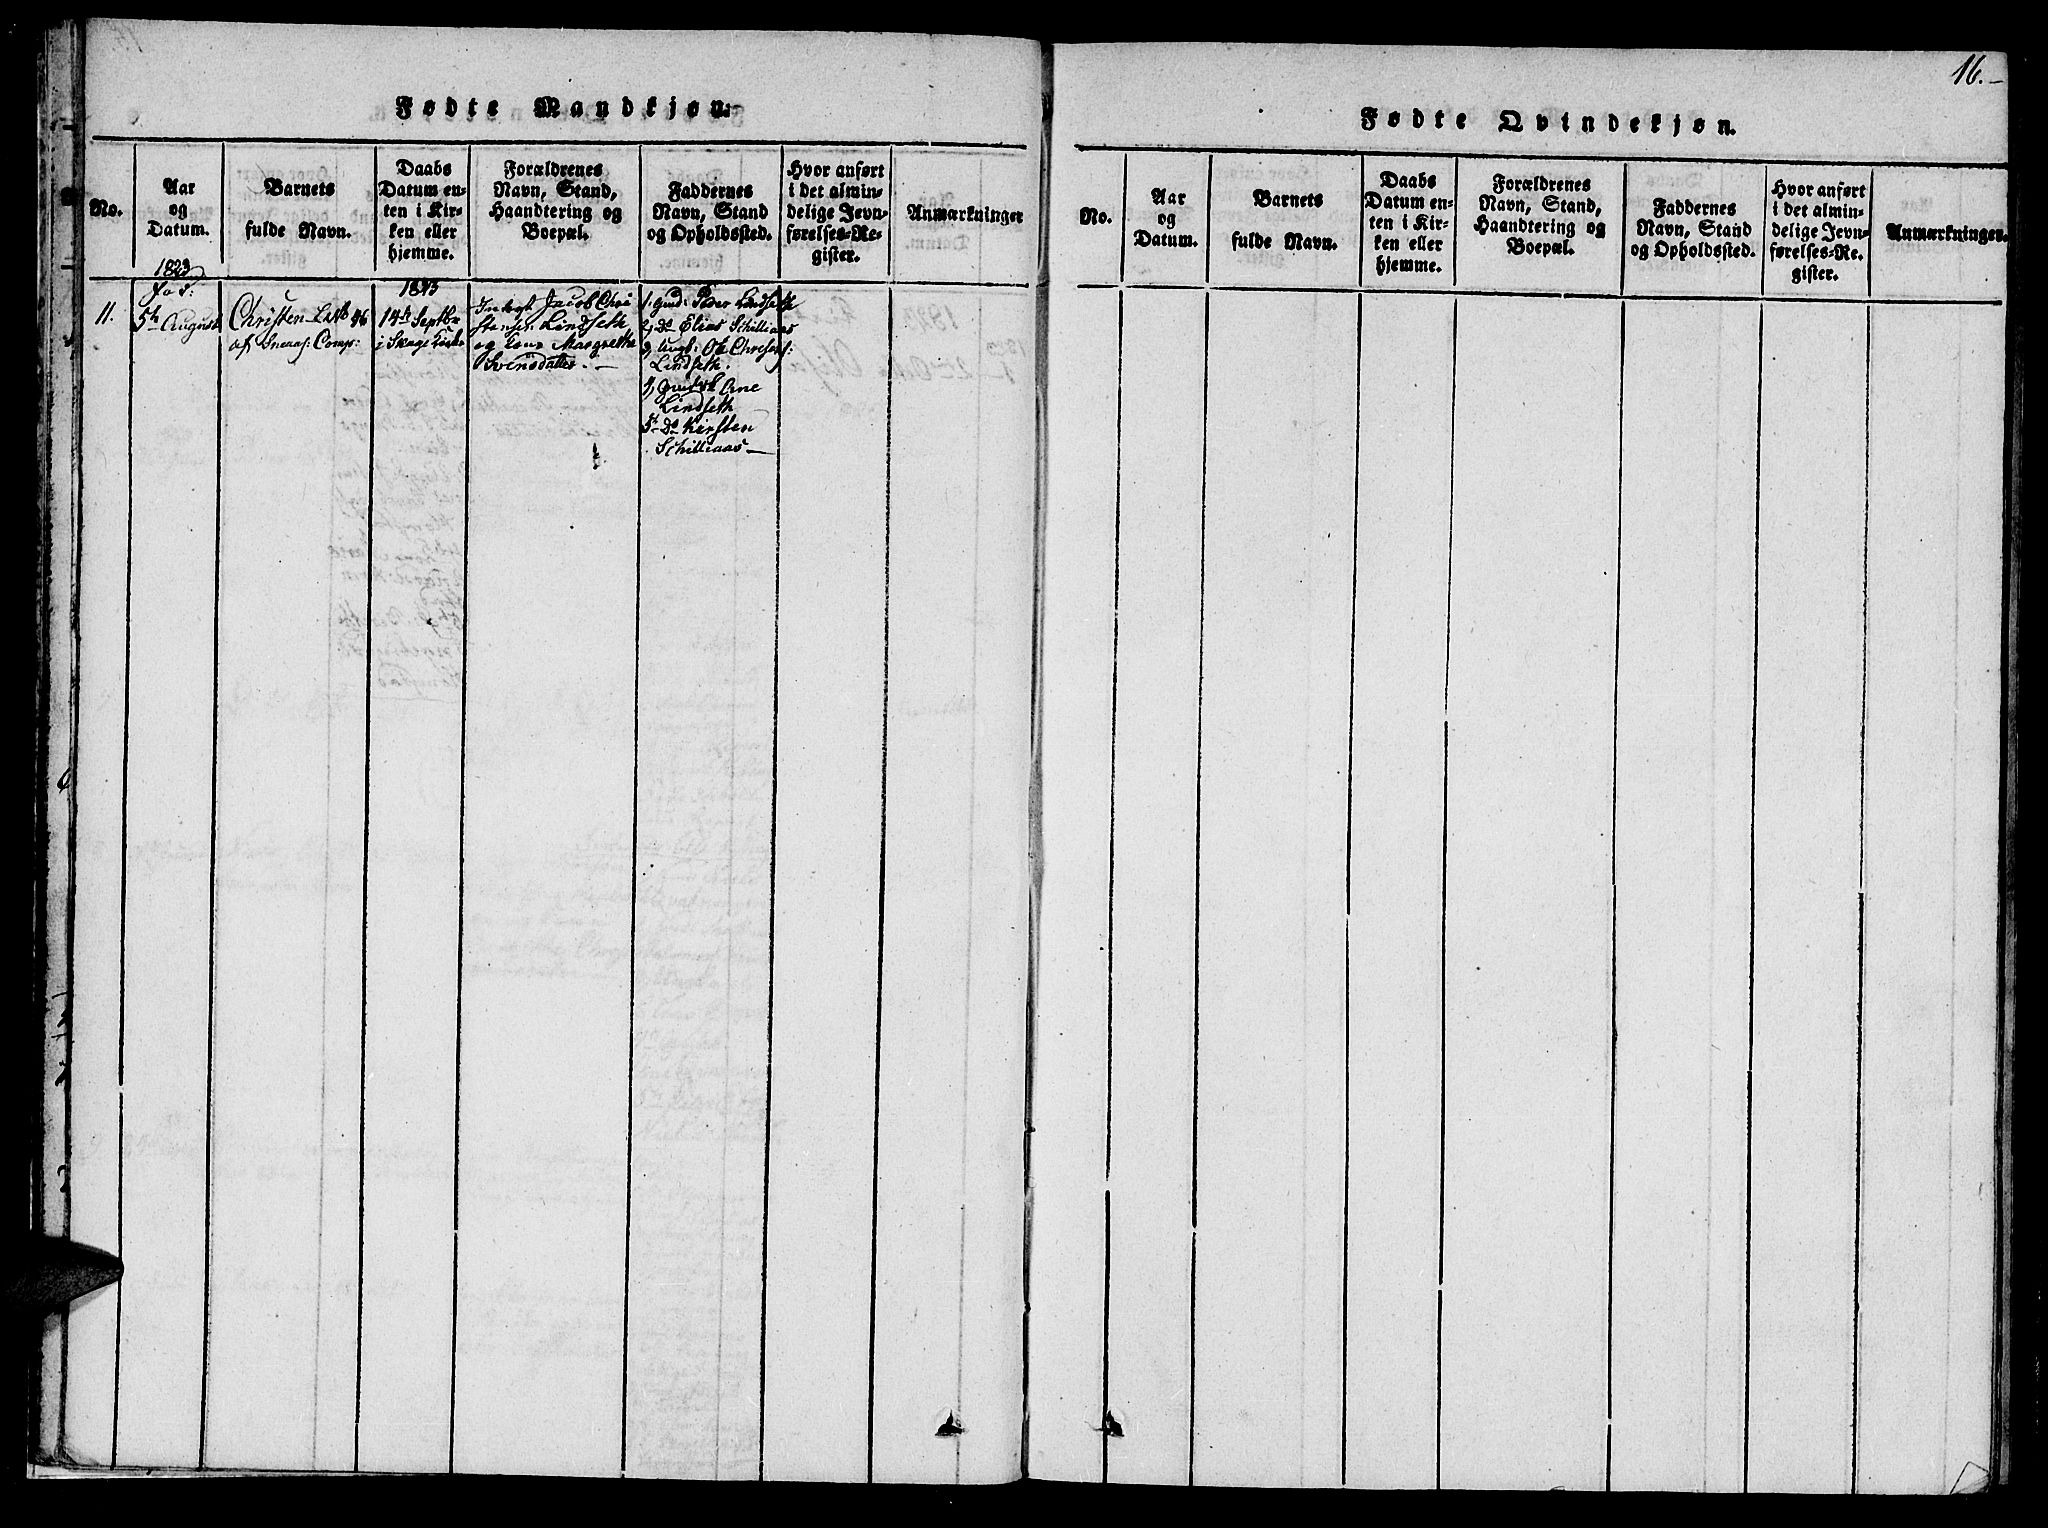 16.-
Fødte Mandkjøn.
No.
Aar
og
Datum.
Barnets
fulde Navn.
Daabs
Datum en-
ten i Kir-
ken eller
hjemme.
Forældrenes
Navn, Stand,
Haandtering og
Boepæl.
Faddernes
Navn, Stand
og Opholdssted.
Hvor anført
i det almin-
delige Jevn-
førelses-Re-
gister.
Anmærkninger
11.
1823
fød:
5te August
Christen
af Sneaas: Comp:
1823
14de Septbr
i Skage Kirke
Jacob Chri
stensen Lindseth
og Kone Margretha
Svensdatter. —
1, Gmd: Peder Lindseth
2, Do Elias Schilliaas
3, Ungk: Ole Christens:
Lindseth.
4, Arne
Lindseth
5, Do Kirsten
Schilliaas —
Fødte Qvindekjøn.
No.
Aar
og
Datum.
Barnets
fulde Navn.
Daabs
Datum en-
ten i Kir-
ken eller
hjemme.
Forældrenes
Navn, Stand,
Haandtering og
Boepæl.
Faddernes
Navn, Stand
og Opholdssted.
Hvor anført
i det almin-
delige Jevn-
førelses-Re-
gister.
Anmærkninger.